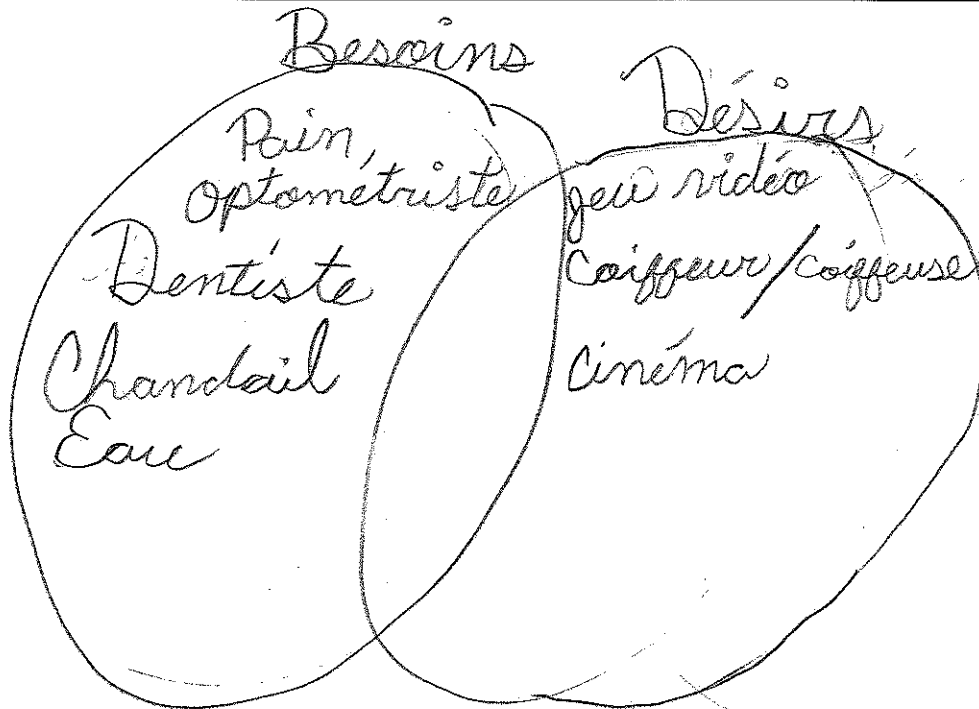 Besoins
Pain,
optométriste
Dentiste
Chandail
Eau
Désirs
jeu vidéo
coiffeur/coiffeuse
cinéma